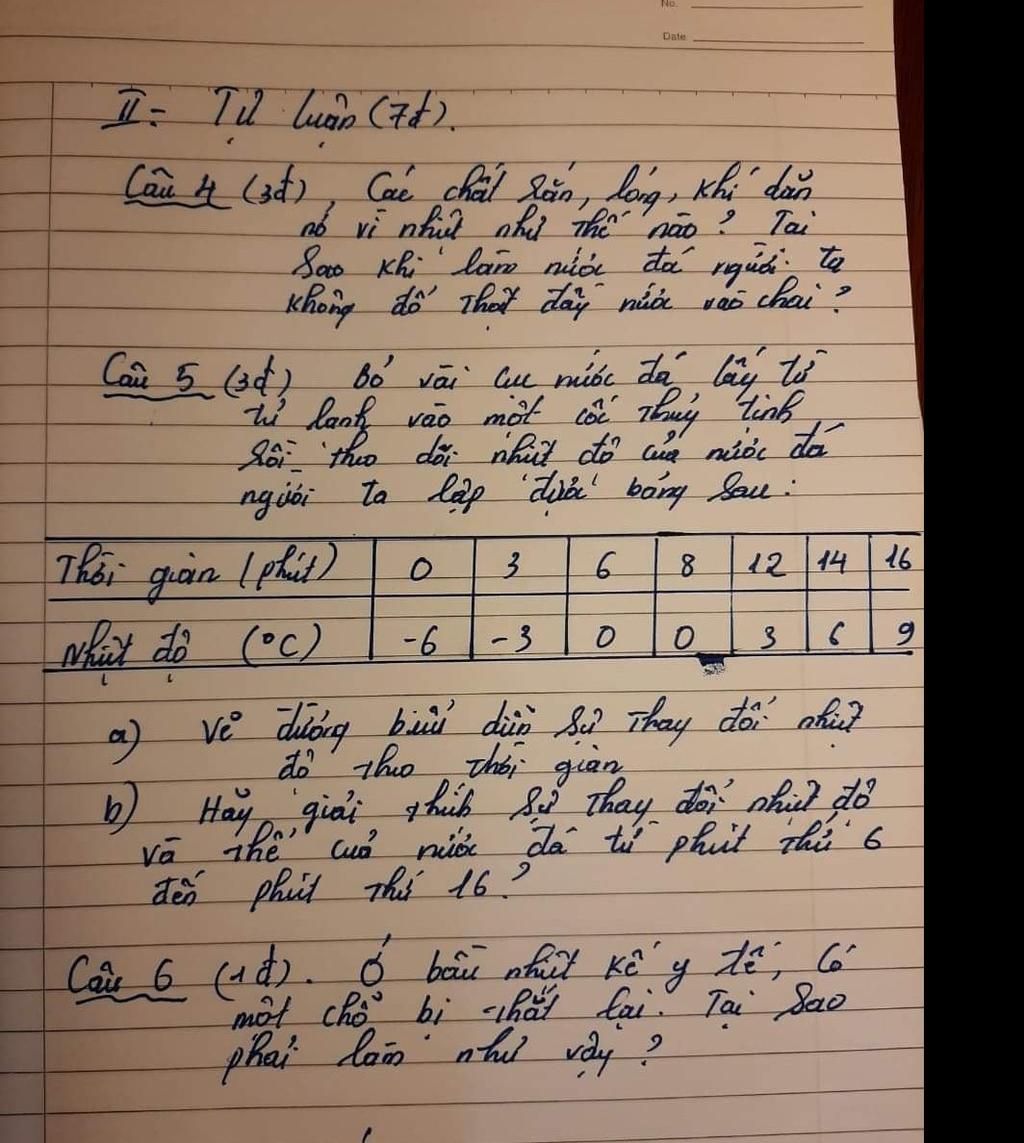 No.
Date
II- Tự luận (7đ).
Câu 4 (3đ), Các chất rắn, lỏng, khí dãn
nở vì nhiệt như thế nào? Tại
Sao khi làm nước đá người ta
không đổ thật đầy nước vào chai?
Câu 5 (3đ) Bỏ vài cục nước đá lấy từ
tủ lạnh vào một cốc thuỷ tinh
rồi theo dõi nhiệt độ của nước đá
người ta lập được bảng sau:
Thời giàn (phút) 0 3 6 8 12 14 16
Nhiệt độ (°C) -6 -3 0 0 3 6 9
a) Vẽ đường biểu diễn sự thay đổi nhiệt
độ theo thời giàn
b) Hãy giải thích sự thay đổi nhiệt độ
và thể của nước đá từ phút thứ 6
đến phút thứ 16?
Câu 6 (1đ). Ở bầu nhiệt kế y tế, Có
một chỗ bị thắt lại. Tại Sao
phải làm như vậy?